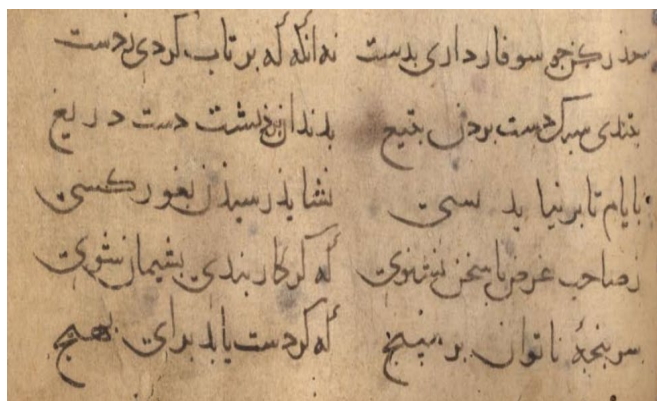 حذر کن جو سوفار داری بدست نه آنکه که بر تاب کردی زدست
بتندی سبک دست بردن بتیغ بدندان برذ بشت دست دریغ
بایام تا بر نیاید بسی نشایذ رسیذن بغور کسی
زصاحب غرض تا سخن نشنوی که کر کار بندی بشیمان شوی
سر بنجهٔ ناتوان بر مبیج که کر دست یابد برای بهیج